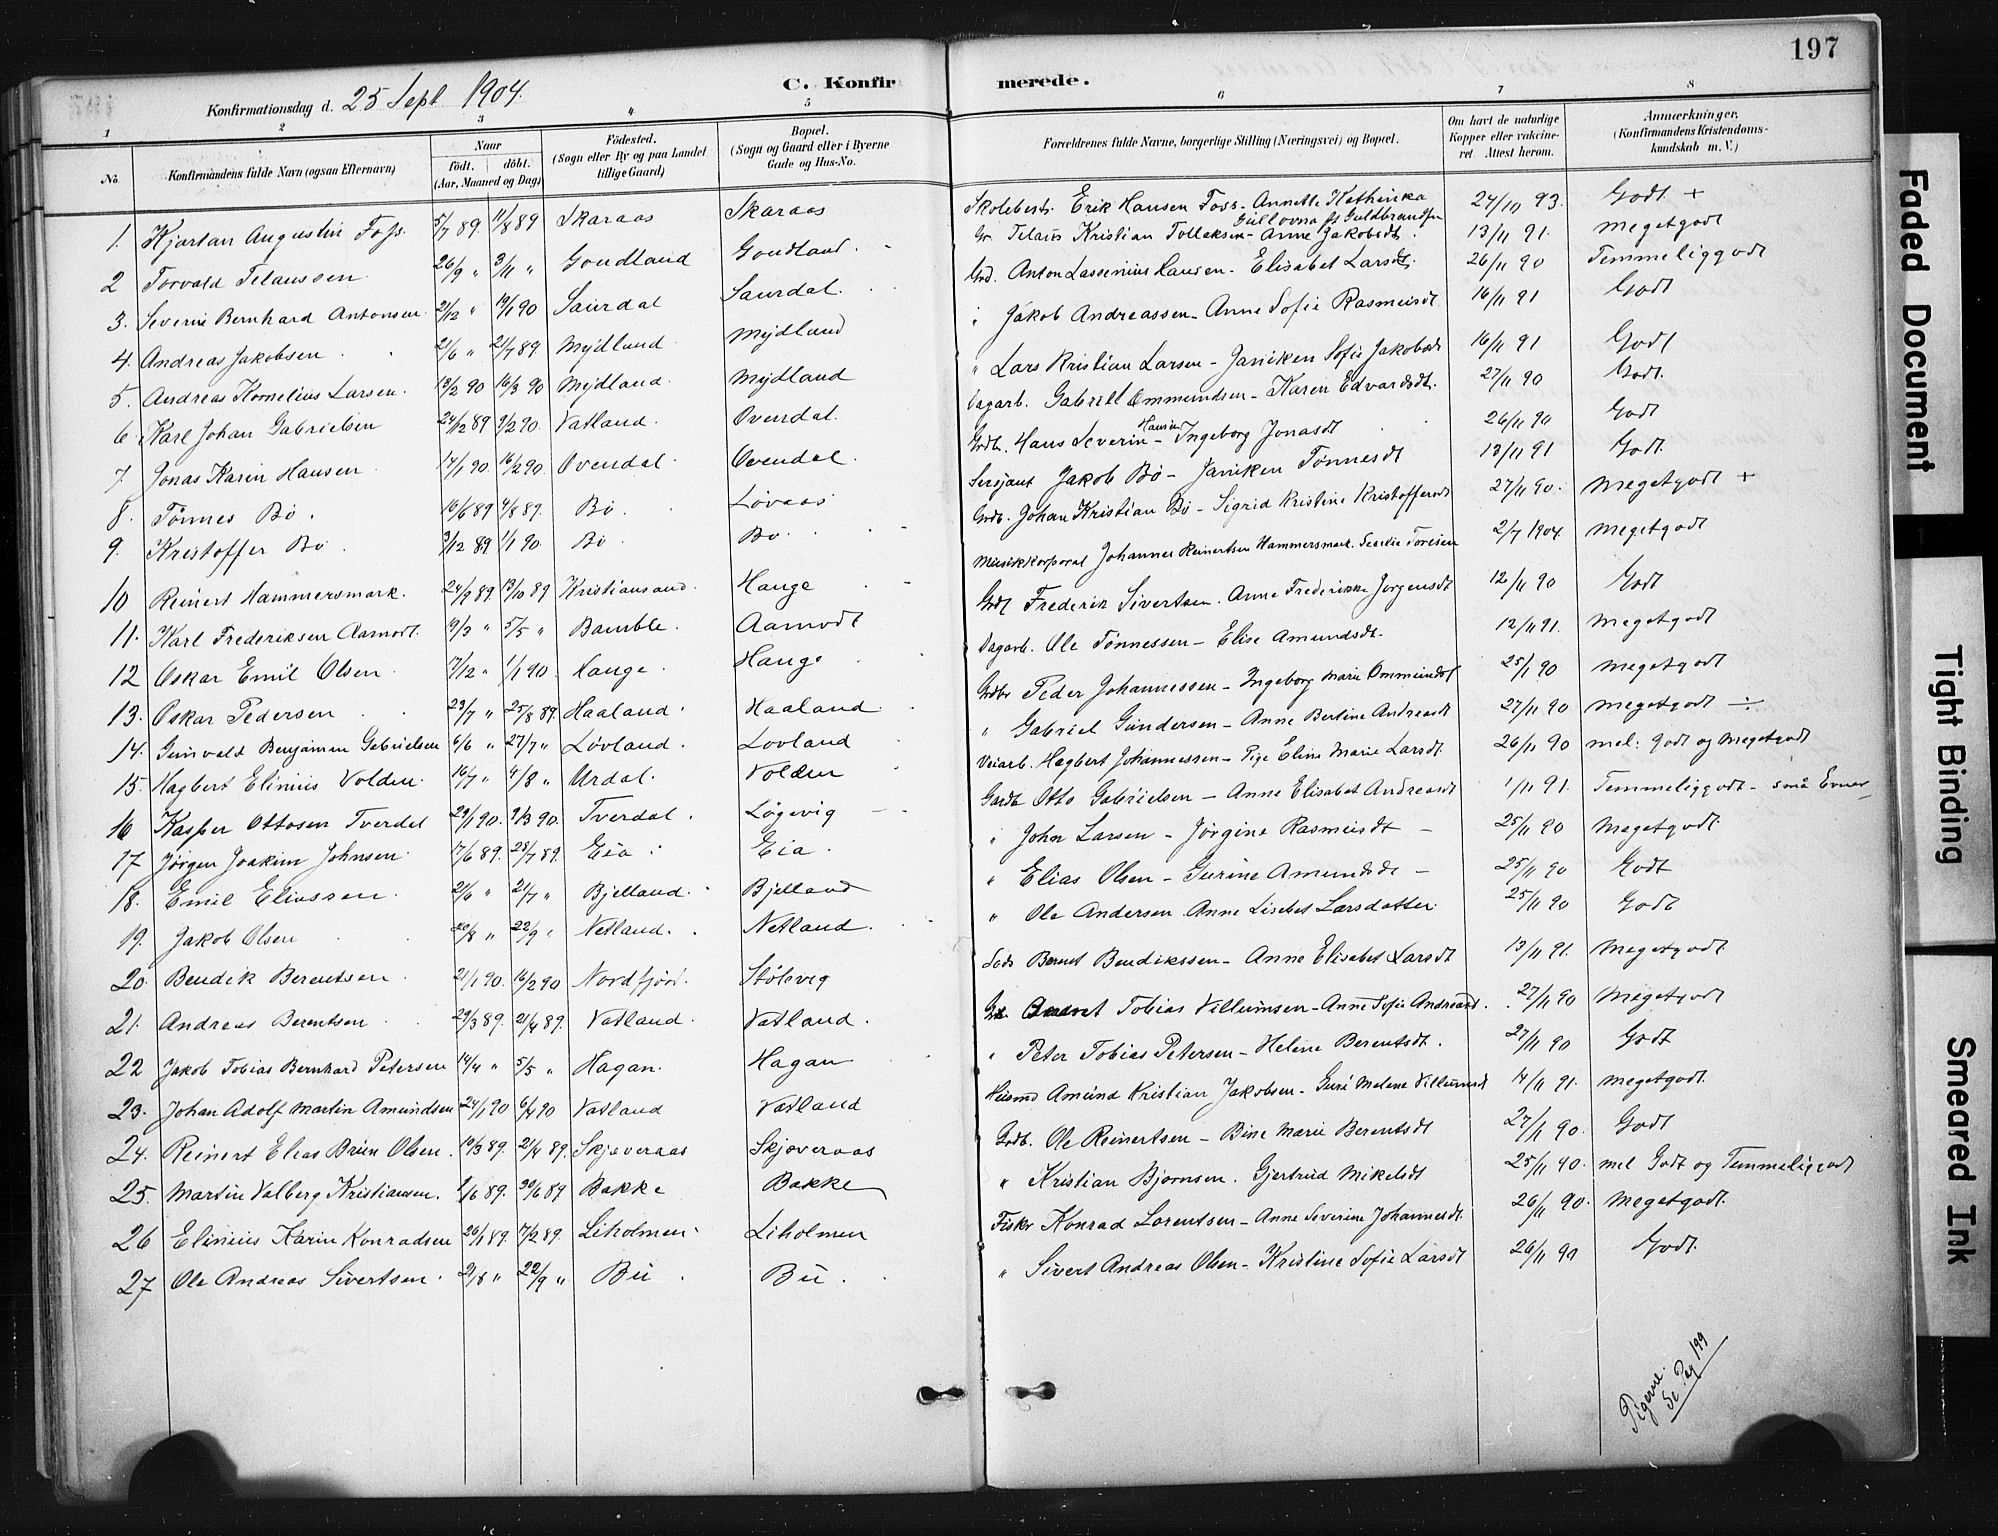 197
Konfirmationsdag d. 25 Sept 1904.
C. Konfirmerede.
1 2 3 " 5 6 7 8
No. Konfirmandens fulde Navn (ogsaa Efternavn) Naar født. døbt. (Aar, Maaned og Dag) Fødested. (Sogn eller By og paa Landet tillige Gaard) Bopæl. (Sogn og Gaard eller i Byerne Gade og Hus-No. Forældrenes fulde Navne, borgerlige Stilling (Næringsvei) og Bopæl. Om havt de naturlige Kopper eller vakcineret. Attest herom. Anmærkninger. (Konfirmandens Kristendomskundskab m. V.)
1. Kjartan Augustin Foss. 5/7 89 11/8 89 Skaraas Skaraas Skolebest. Erik Hansen Foss - Annette Kathinka Gullovna f. Guldbrandsen 24/10 93. Godt +
2 Torvald Telaussen 26/9 " 3/11 " Goudland Goudland Gr. Telaus Kristian Tollaksen - Anne Jakobsdt. 13/11 91. Megetgodt
3. Severin Bernhard Antonsen 21/12 " 19/1 90 Saurdal Saurdal. Grd. Anton Lassenius Hansen - Elisabet Larsdt. 26/11 90 Temmeliggodt
4. Andreas Jakobsen 21/6 " 21/7 89. Mydland Mydland " Jakob Andreassen - Anne Sofie Rasmusdt 16/11 91 Godt
5. Andreas Kornelius Larsen. 13/2 90 16/3 90 Mydland. Mydland " Lars Kristian Larsen - Janiken Sofie Jakobsdt 16/11 91 Godt
6. Karl Johan Gabrielsen 24/12 89 9/2 90. Vatland. Ovendal. Dagarb. Gabriell Ommundsen - Karen Edvardsdt. 27/11 90 Godt.
7. Jonas Karin Hansen 14/1 90. 16/2 90 Ovendal. Ovendal. Grdb. Hans Severin Hansen - Ingeborg Jonasdt 26/11 90 Godt
8. Tønnes Bø. 16/6 89 4/8 89. Bø. Løvaas Sersjant Jakob Bø - Janiken Tønnesdt 13/11 91 Godt.
9. Kristoffer Bø. 3/12 89 1/1 90. Bø. Bø. Grdb. Johan Kristian Bø - Sigrid Kristine Kristoffersdt 27/11 90. Megetgodt +
10 Reinert Hammersmark. 24/9 89. 13/10 89 Kristiansand. Hauge Musikkorporal Johannes Reinertsen Hammersmark. Secilie Toresen 2/7 1904. Megetgodt
11. Karl Frederiksen Aamodt. 19/3 " 5/5 " Bamble. Aamodt Grdb Frederik Sivertsen. Anne Frederikke Jorgensdt 12/11 90 Godt
12 Oskar Emil Olsen 7/12 " 1/1 90. Hauge. Hauge Dagarb. Ole Tønnessen - Elise Amundsdt. 12/11 91. Megetgodt
13. Oskar Pedersen 23/7 " 25/8 89. Haaland. Haaland Grdbr Peder Johannessen - Ingeborg Marie Ommundsdt 25/1 90 Megetgodt
14. Gunvald Benjamin Gabrielsen 6/6 " 27/7 " Løvland. Lovland " Gabriel Gundersen - Anne Bertine Andreasdt 27/11 90 Megetgodt ÷
15. Hagbert Elinius Volden. 16/7 " 4/8 " Urdal. Volden Veiarb. Hagbert Johannessen - Pige Eline Marie Larsdt. 26/11 90 mel: Godt og Megetgodt
16 Kasper Ottosen Tverdal 29/1 90. 9/3 90. Tverdal. Løgevig Gardb Otto Gabrielsen - Anne Elisabet Andreasdt 1/11 91. Temmeliggodt - små Evner
17 Jørgen Joakim Johnsen. 17/6 89. 28/7 89. Eia. Eia. " John Larsen - Jörgine Rasmusdt - 25/11 90 Megetgodt
18. Emil Eliassen 21/6 " 21/7 " Bjelland. Bjelland " Elias Olsen - Gurine Amundsdt - 25/11 90 Godt
19. Jakob Olsen 20/8 " 22/9 " Netland. Netland. " Ole Andersen Anne Lisebet Larsdatter. 25/11 90 Godt
20. Bendik Berentsen 21/1 90. 16/2 90 Nordfjord. Stölevig Berent Bendikssen - Anne Elisabet Larsdt 13/11 91. Megetgodt.
21. Andreas Berentsen. 29/3 89. 21/4 89. Vatland. Vatland. Tobias Villumsen - Anne Sofie Andreasdt. 27/11 90 Megetgodt
22 Jakob Tobias Bernhard Petersen 14/4 " 5/5 " Hagan. Hagan " Peter Tobias Petersen - Helene Berentsdt. 27/11 90 Godt
23. Johan Adolf Martin Amundsen 24/1 90 6/4 90 Vatland Vatland Husmd Amund Kristian Jakobsen - Guri Malene Villumsdt 14/11 91. Megetgodt.
24. Reinert Elias Brun Olsen. 10/3 89. 21/4 89. Skjæveraas Skjæveraas Grdb. Ole Reinertsen - Bine Marie Berentsdt 27/11 90. Godt
25. Martin Valberg Kristiansen. 1/6 89. 30/6 89 Bakke Bakke " Kristian Bjornsen. Gjertrud Mikelsdt 25/11 90. mel Godt og Temmeliggodt
26 Elinius Karin Konradsen 20/1 89. 17/2 89. Liholmen. Liholmen Fisker Konrad Lorentsen - Anne Severine Johannesdt. 26/11 90. Megetgodt.
27 Ole Andreas Sivertsen. 21/8 " 22/9 " Bu Bu. " Sivert Andreas Olsen - Kristine Sofie Larsdt 26/11 90 Godt.
Pigerne se Pag 199
Faded Document
Tight Binding
Smeared Ink